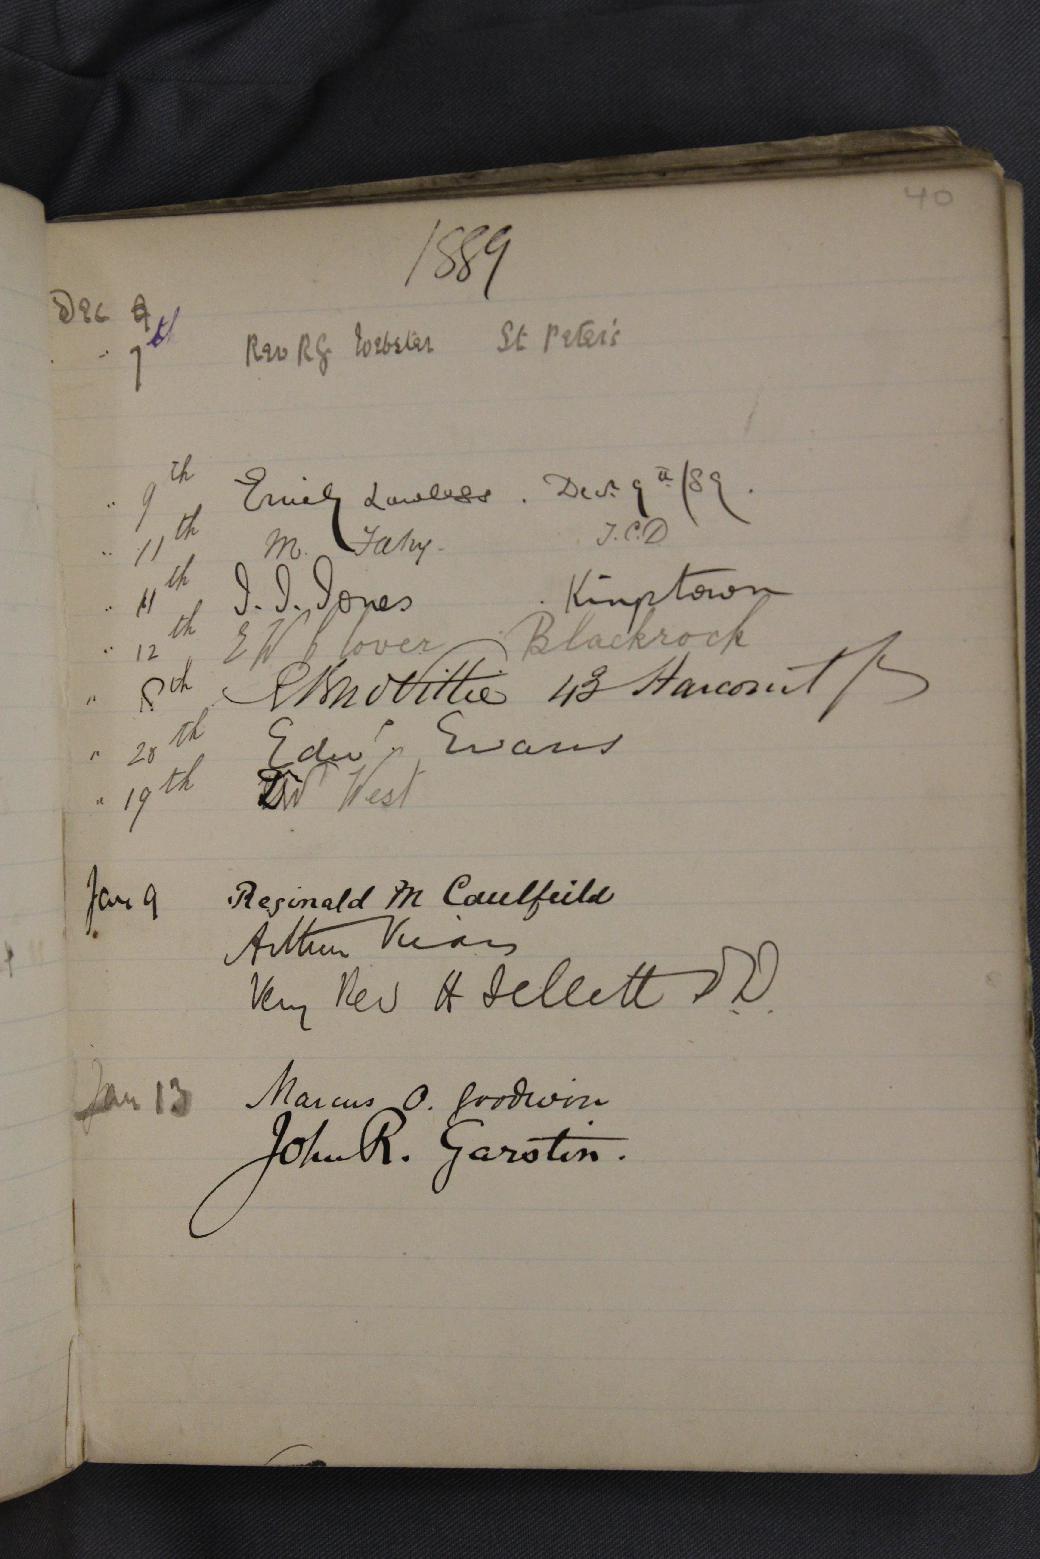 40
1889
Dec
" 7th Rev RG Webster St Peter's
" 9th Emily Lawless . Decr. 9th/89.
" 11th M. Fahy. T.C.D
" 11th J. J. Jones Kingstown
" 12th E W Glover Blackrock
" 8th 43 Harcourt
" 20th Edwd Evans
" 19th West
Jan 9 Reginald M Caulfeild
Arthur Vicars
Very Rev H Jellett D.D.
Jan 13 Marcus O. Goodwin
John R. Garstin.